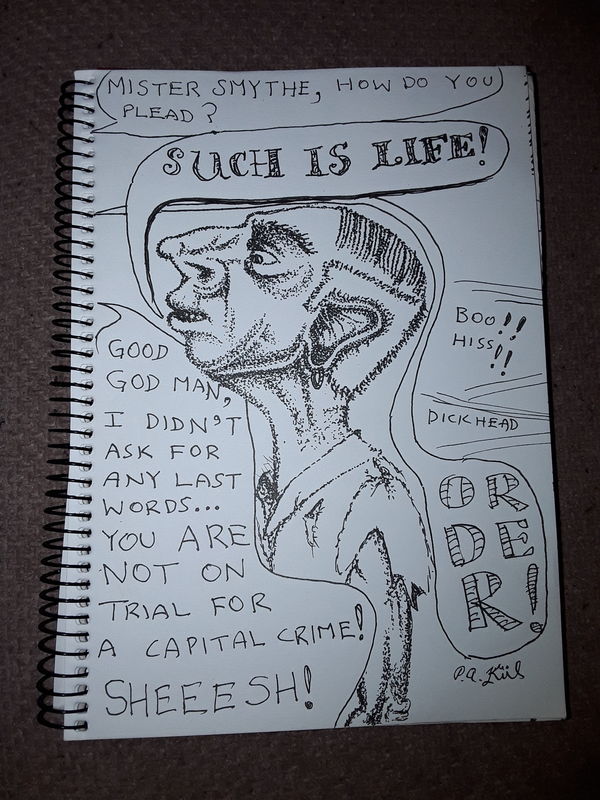 MISTER SMYTHE, HOW DO YOU
PLEAD?
SUCH IS LIFE!
GOOD
GOD MAN,
I DIDN'T
ASK FOR
ANY LAST
WORDS...
YOU ARE
NOT ON
TRIAL FOR
A CAPITAL CRIME!
SHEEESH!
BOO!!
HISS!!
DICKHEAD
OR
DE
R!
P.A. Kiil